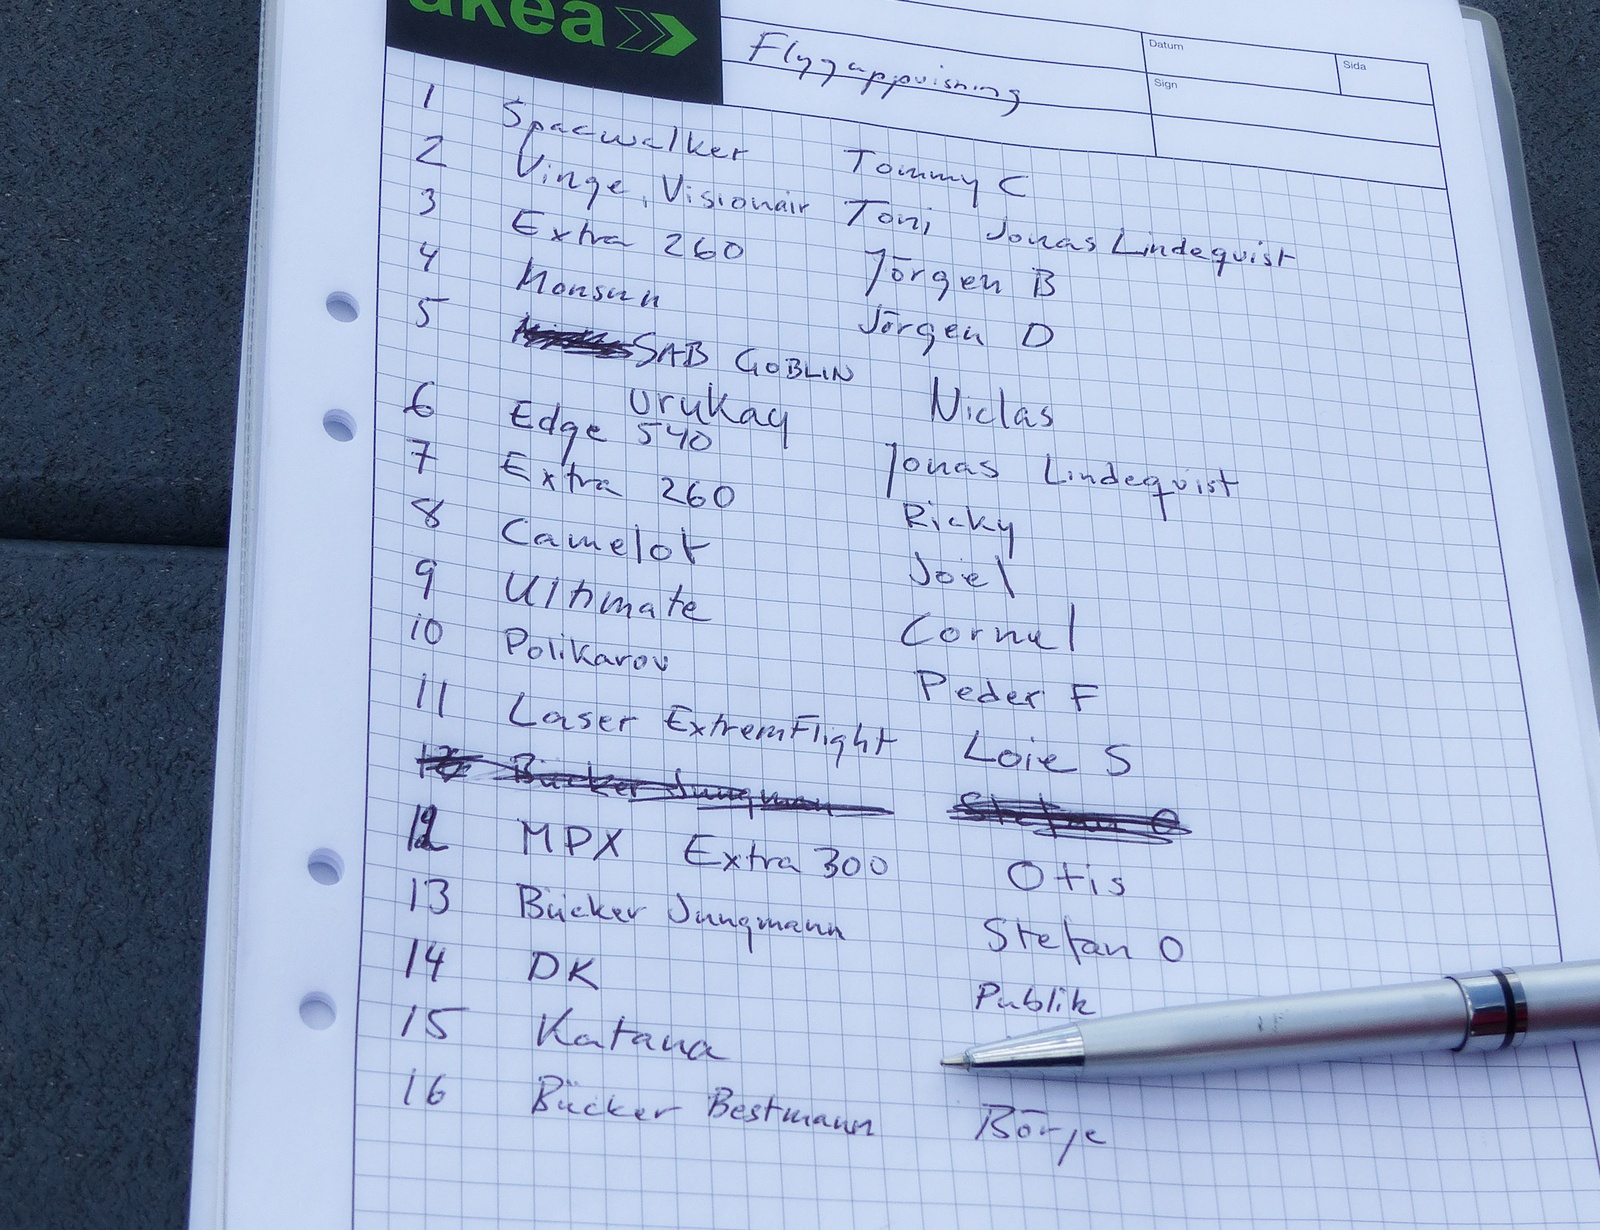 akea
Flygappvisning
Datum
Sida
Sign
1 Spacwalker Tommy C
2 Vinge, Visionair Toni Jonas Lindequist
3 Extra 260 Jörgen B
4 Monsun Jörgen D
5 SAB GOBLIN
Urukay Niclas
6 Edge 540 Jonas Lindequist
7 Extra 260 Ricky
8 Camelot Joel
9 Ultimate Cornel
10 Polikarov Peder F
11 Laser ExtremFlight Loie S
12 Bücker Jungman Stefan O
12 MPX Extra 300 Otis
13 Bücker Jungmann Stefan O
14 DK Publik
15 Katana
16 Bücker Bestmann Börje